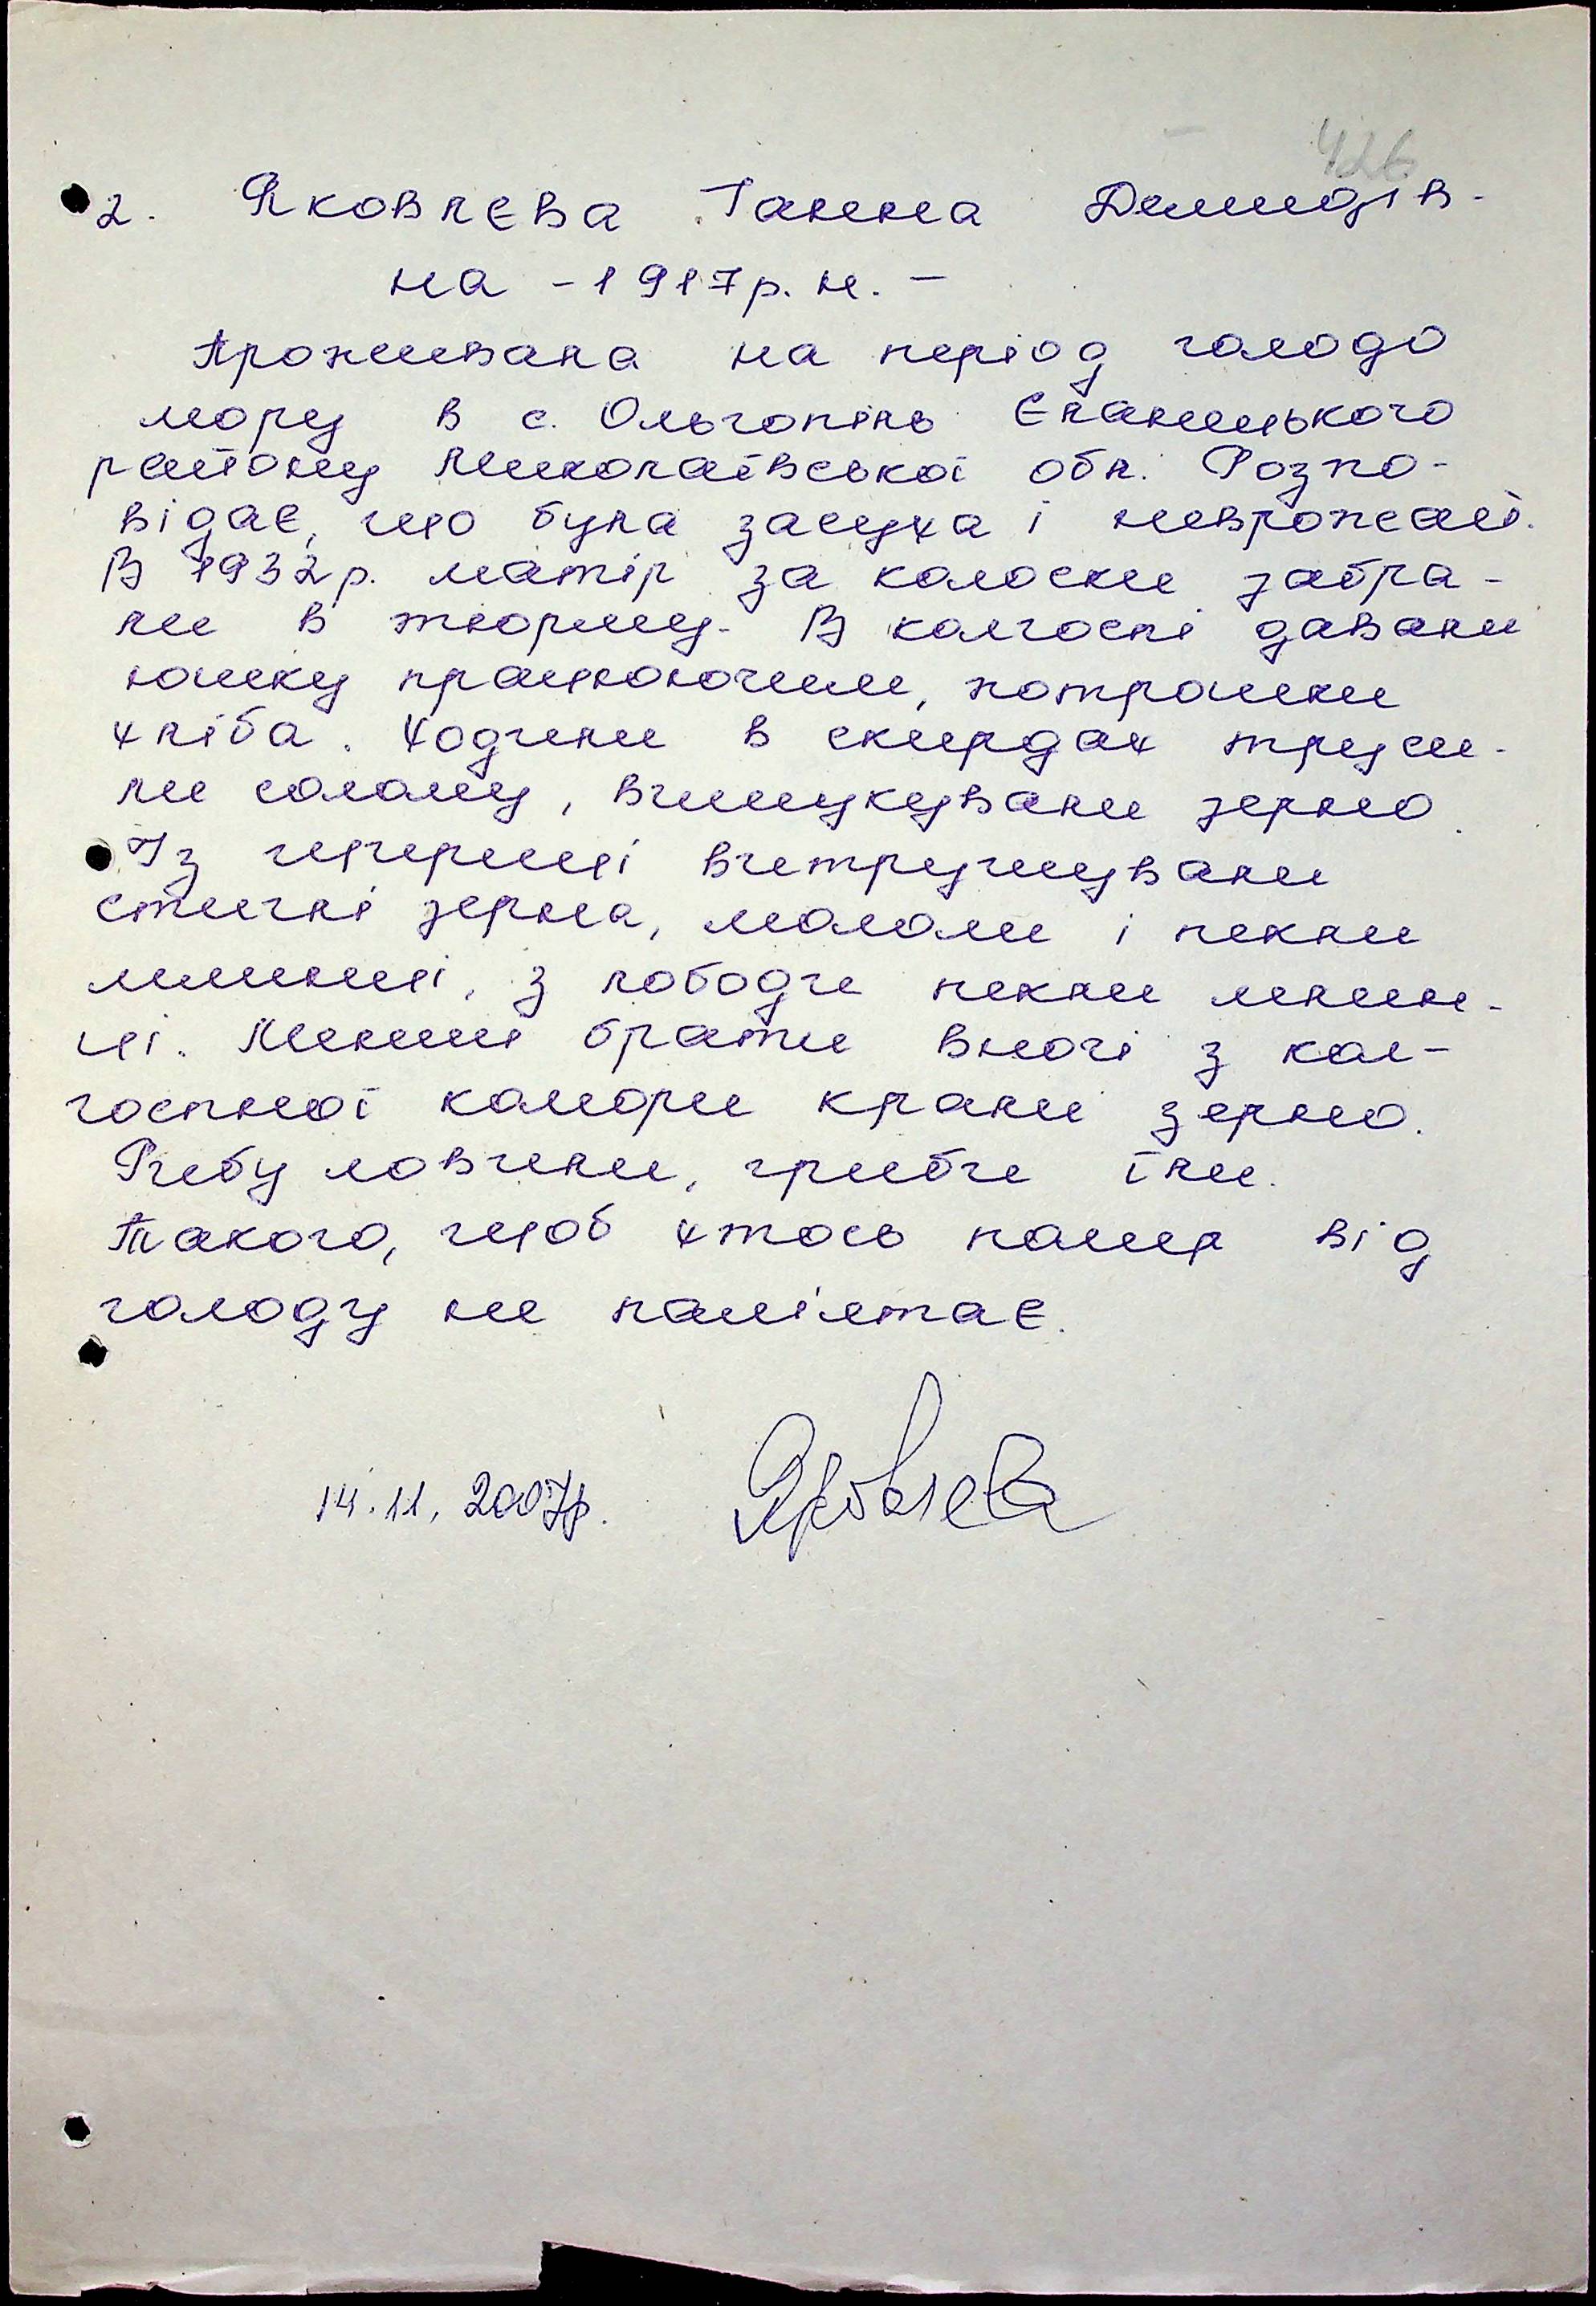 426
2. Яковлєва Ганна Демидів-
на - 1917 р. н. -
Проживала на період голодо
мору в с. Ольгопіль Єланецького
району Миколаївської обл. Розпо-
відає, що була засуха і неврожай.
В 1932 р. матір за колоски забра-
ли в тюрьму. В колгоспі давали
юшку працюючим, потрошки
хліба. Ходили в скирдах труси-
ли солому, вишукували зерно.
Із ціпериці витрушували
стиглі зерна, мололи і пекли
млинці, з лободи пекли млин-
ці. Менші брати вночі з кол-
госпної комори крали зерно.
Рибу ловили, гриби їли.
Такого, щоб хтось помер від
голоду не пам'ятає.
14.11.2007р. Яковлева